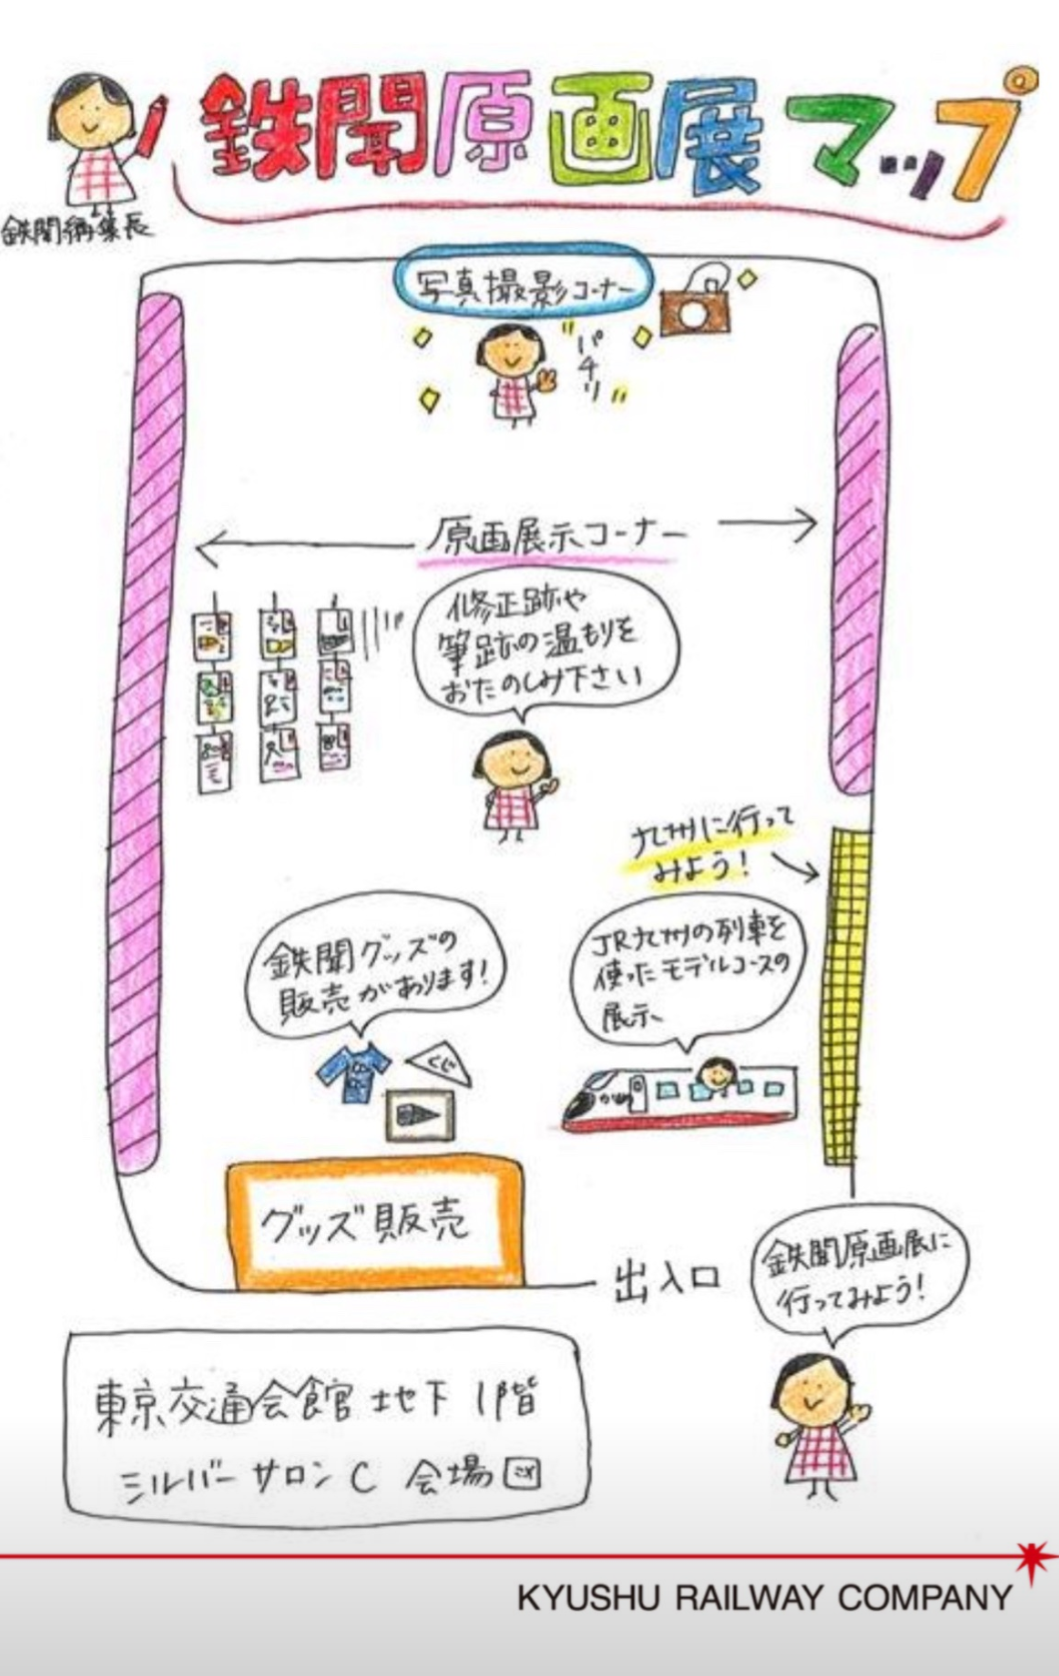 鉄聞原画展マップ
鉄聞編集長
写真撮影コーナー
パチリ
原画展示コーナー
修正跡や
筆跡の温もりを
おたのしみ下さい
九州に行って
みよう!
鉄聞グッズの
販売があります!
JR九州の列車を
使ったモデルコースの
展示、
くじ
かもめ
グッズ販売
出入口
鉄聞原画展に
行ってみよう!
東京交通会館 地下1階
シルバーサロンC 会場図
KYUSHU RAILWAY COMPANY